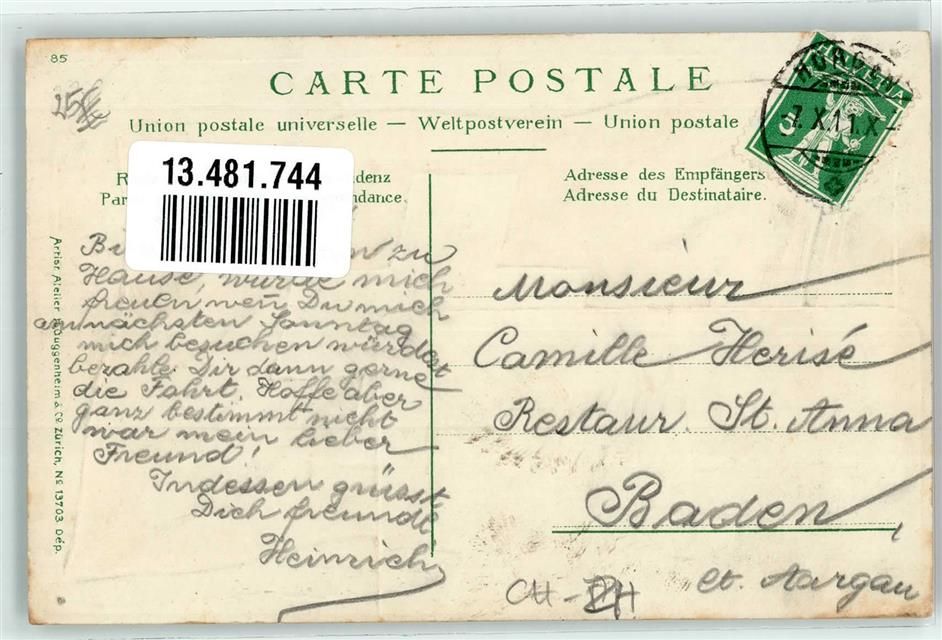 85
CARTE POSTALE
Union postale universelle — Weltpostverein — Union postale
13.481.744
Adresse des Empfängers
Adresse du Destinataire.
HELVETIA
5
HORGEN
X.11.X
zu
Hause, würde mich
freuen wen̄ Du mich
am nächsten Sonntag
mich besuchen würdest
bezahle Dir dann gerne
die Fahrt. Hoffe aber
ganz bestimmt nicht
war mein lieber
Freund!
Indessen grüsst
Dich freundl
Heinrich
Monsieur
Camille Herisé
Restaur. St. Anna
Baden
Ct. Aargau
CH-
Artist. Atelier H. Guggenheim & Co. Zürich, No 13703 Dép.